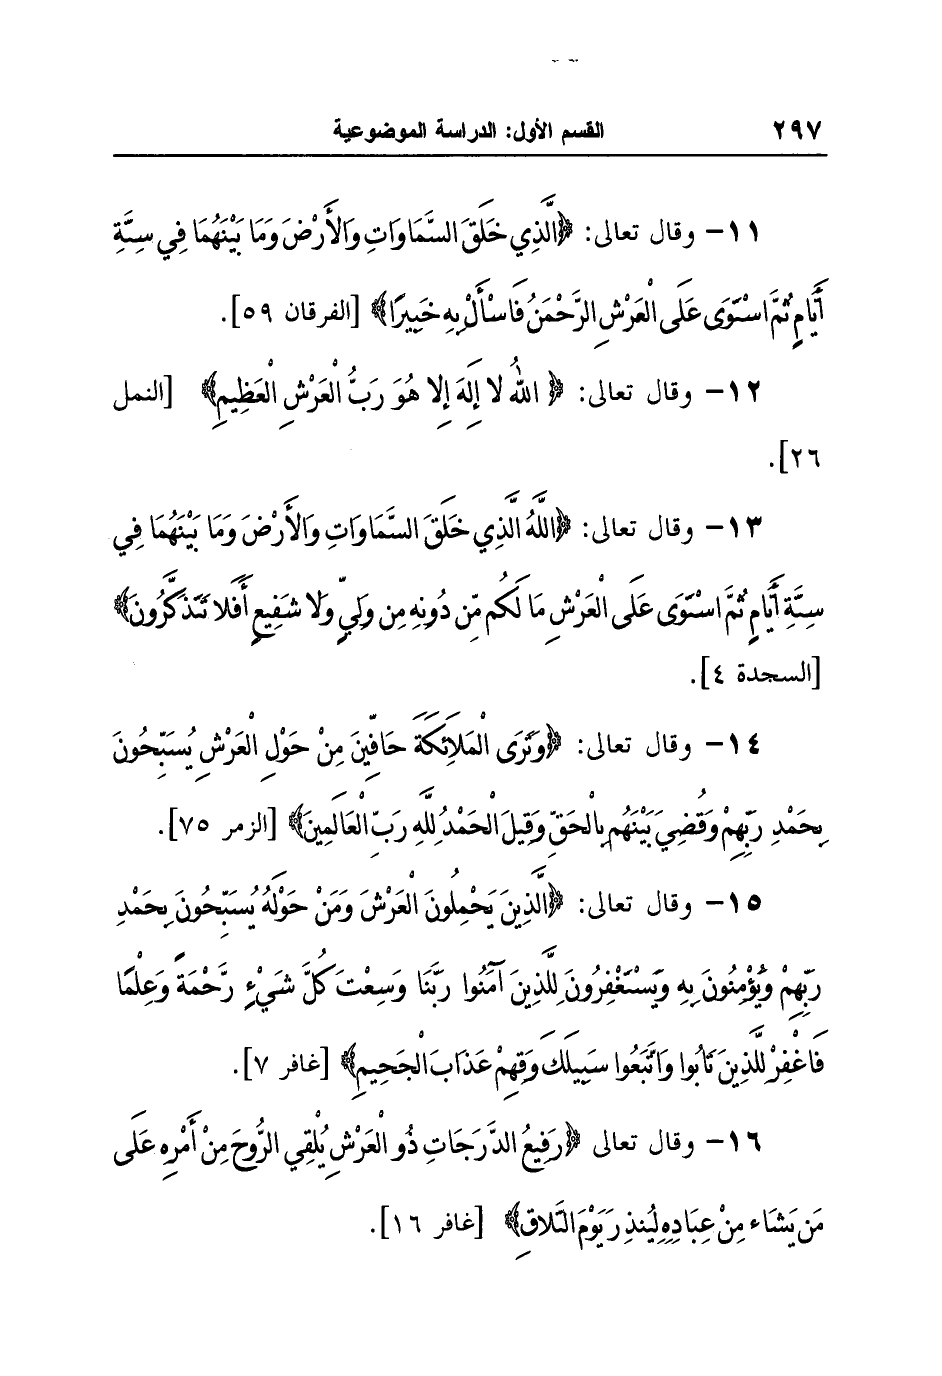 ٢٩٧ القسم الأول: الدراسة الموضوعية
١١- وقال تعالى: ﴿الَّذِي خَلَقَ السَّمَاوَاتِ وَالأَرْضَ وَمَا بَيْنَهُمَا فِي سِتَّةِ
أَيَّامٍ ثُمَّ اسْتَوَى عَلَى الْعَرْشِ الرَّحْمَنُ فَاسْأَلْ بِهِ خَبِيرًا﴾ [الفرقان ٥٩].
١٢- وقال تعالى: ﴿ اللهُ لا إِلَهَ إِلا هُوَ رَبُّ الْعَرْشِ الْعَظِيمِ﴾ [النمل
٢٦].
١٣- وقال تعالى: ﴿اللَّهُ الَّذِي خَلَقَ السَّمَاوَاتِ وَالأَرْضَ وَمَا بَيْنَهُمَا فِي
سِتَّةِ أَيَّامٍ ثُمَّ اسْتَوَى عَلَى الْعَرْشِ مَا لَكُم مِّن دُونِهِ مِن وَلِيٍّ وَلا شَفِيعٍ أَفَلا تَتَذَكَّرُونَ﴾
[السجدة ٤].
١٤- وقال تعالى: ﴿وَتَرَى الْمَلائِكَةَ حَافِّينَ مِنْ حَوْلِ الْعَرْشِ يُسَبِّحُونَ
بِحَمْدِ رَبِّهِمْ وَقُضِيَ بَيْنَهُم بِالْحَقِّ وَقِيلَ الْحَمْدُ لِلَّهِ رَبِّ الْعَالَمِينَ﴾ [الزمر ٧٥].
١٥- وقال تعالى: ﴿الَّذِينَ يَحْمِلُونَ الْعَرْشَ وَمَنْ حَوْلَهُ يُسَبِّحُونَ بِحَمْدِ
رَبِّهِمْ وَيُؤْمِنُونَ بِهِ وَيَسْتَغْفِرُونَ لِلَّذِينَ آمَنُوا رَبَّنَا وَسِعْتَ كُلَّ شَيْءٍ رَّحْمَةً وَعِلْمًا
فَاغْفِرْ لِلَّذِينَ تَابُوا وَاتَّبَعُوا سَبِيلَكَ وَقِهِمْ عَذَابَ الْجَحِيمِ﴾ [غافر ٧].
١٦- وقال تعالى ﴿رَفِيعُ الدَّرَجَاتِ ذُو الْعَرْشِ يُلْقِي الرُّوحَ مِنْ أَمْرِهِ عَلَى
مَن يَشَاء مِنْ عِبَادِهِ لِيُنذِرَ يَوْمَ التَّلاقِ﴾ [غافر ١٦].